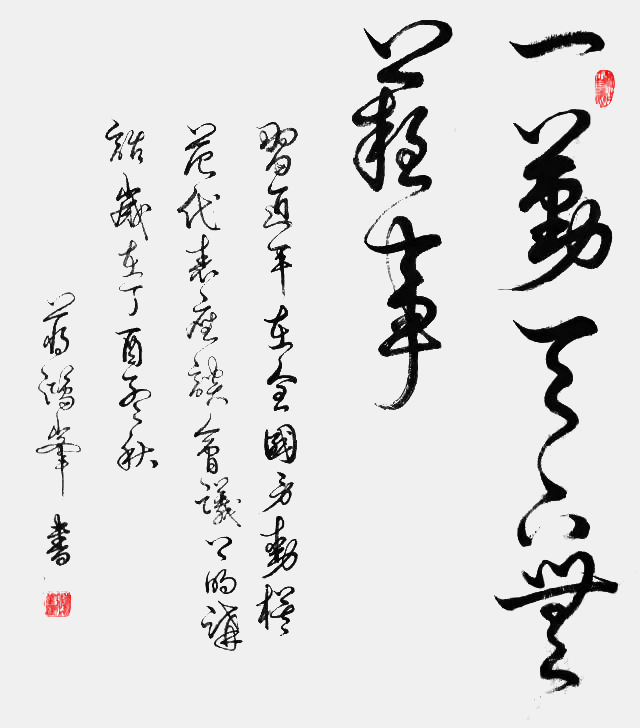 一勤天下無
難事
習近平在全國勞動模
范代表座談會議上的講
話歲在丁酉年秋
蔣鴻峯書